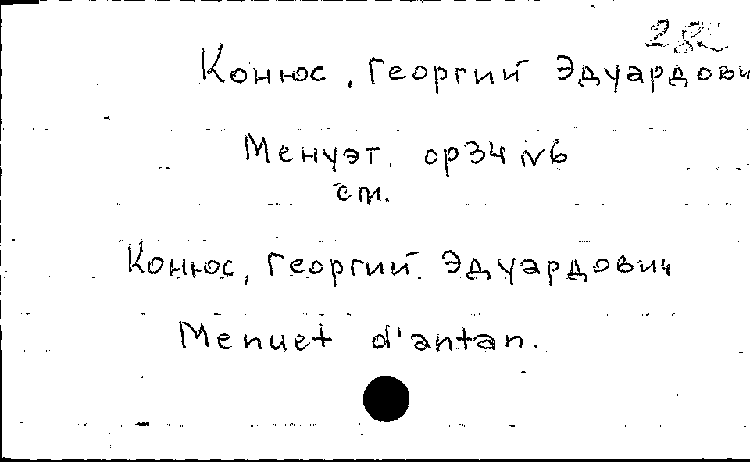 Конюс, Георгий Эдуардови
Менуэт. ор34 №6
ст.
Конюс, Георгий Эдуардович
Menuet d'antan.